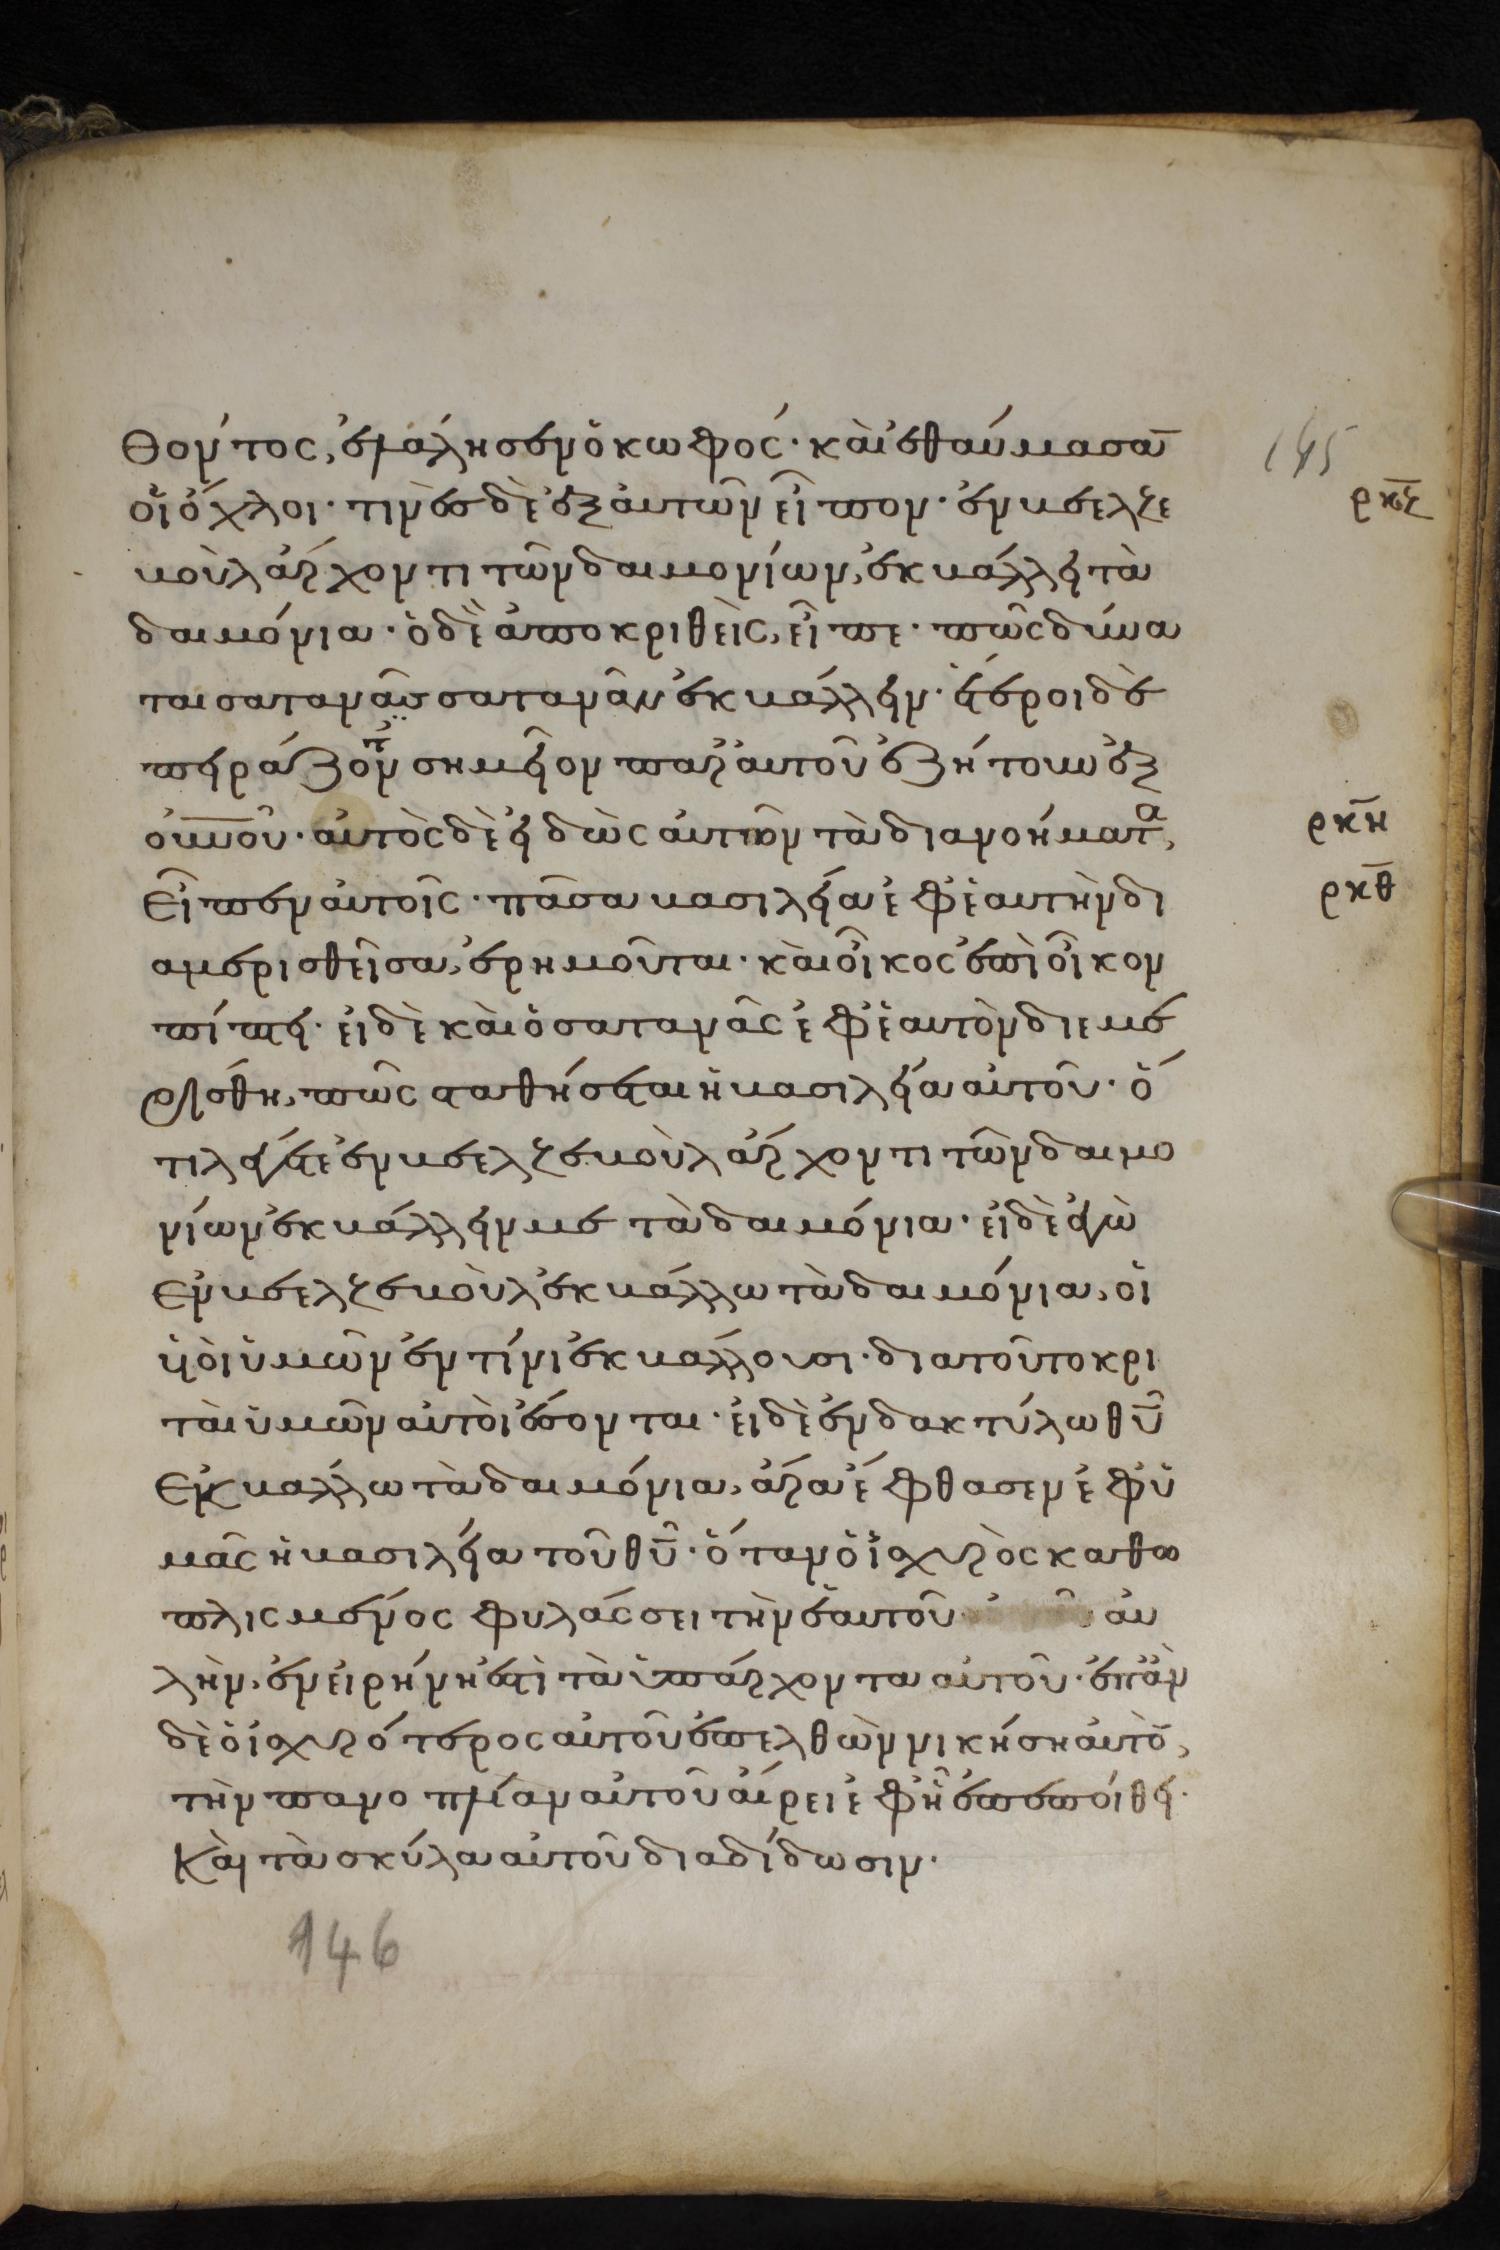 θόντος, ἐλάλησεν ὁ κωφός· καὶ ἐθαύμασα̅
οἱ ὄχλοι· τινὲς δὲ ἐξ αὐτῶν εἶπον· ἐν βεελζε
βοὺλ ἄρχοντι τῶν δαιμονίων, ἐκβάλλει τὰ
δαιμόνια· ὁ δὲ ἀποκριθεὶς, εἶπε· πῶς δύνα
ται σατανᾶς σατανᾶν ἐκβάλλειν· ἕτεροι δὲ
πειράζοντ σημεῖον παρ' αὐτοῦ ἐζήτουν ἐξ
οὐ̅νοῦ· αὐτὸς δὲ εἰδὼς αὐτῶν τὰ διανοήματα,
εἶπεν αὐτοῖς· πᾶσα βασιλεία ἐφ' ἑαυτὴν δι
αμερισθεῖσα, ἐρημοῦται· καὶ οἶκος ἐπὶ οἶκον
πίπτει· εἰ δὲ καὶ ὁ σατανᾶς ἐφ' ἑαυτὸν διεμε
ρίσθη, πῶς σταθήσεται ἡ βασιλεία αὐτοῦ· ὅ
τι λέγετε ἐν βεελζεβοὺλ ἄρχοντι τῶν δαιμο
νίων ἐκβάλλειν με τὰ δαιμόνια· εἰ δὲ ἐγὼ
ἐν βεελζεβοὺλ ἐκβάλλω τὰ δαιμόνια, οἱ
υἱοὶ ὑμῶν ἐν τίνι ἐκβάλλουσι· διατοῦτο κρι
ταὶ ὑμῶν αὐτοὶ ἔσονται· εἰ δὲ ἐν δακτύλω θ̅υ̅
ἐκβάλλω τὰ δαιμόνια, ἄρα ἔφθασεν ἐφ' ὑ
μᾶς ἡ βασιλεία τοῦ θ̅υ̅· ὅταν ὁ ἰσχυρὸς καθω
πλισμένος φυλάσσει τὴν ἑαυτοῦ αὐ
λὴν, ἐν εἰρήνη ἐστὶ τὰ ὑπάρχοντα αὐτοῦ· ἐπὰν
δὲ ὁ ἰσχυρότερος αὐτοῦ ἐπελθὼν νικήση αὐτὸ̅,
τὴν πανοπλίαν αὐτοῦ αἴρει ἐφ' ἧ ἐπεποίθει·
καὶ τὰ σκύλα αὐτοῦ διαδίδωσιν·
145
ρκζ
ρκη
ρκθ
146